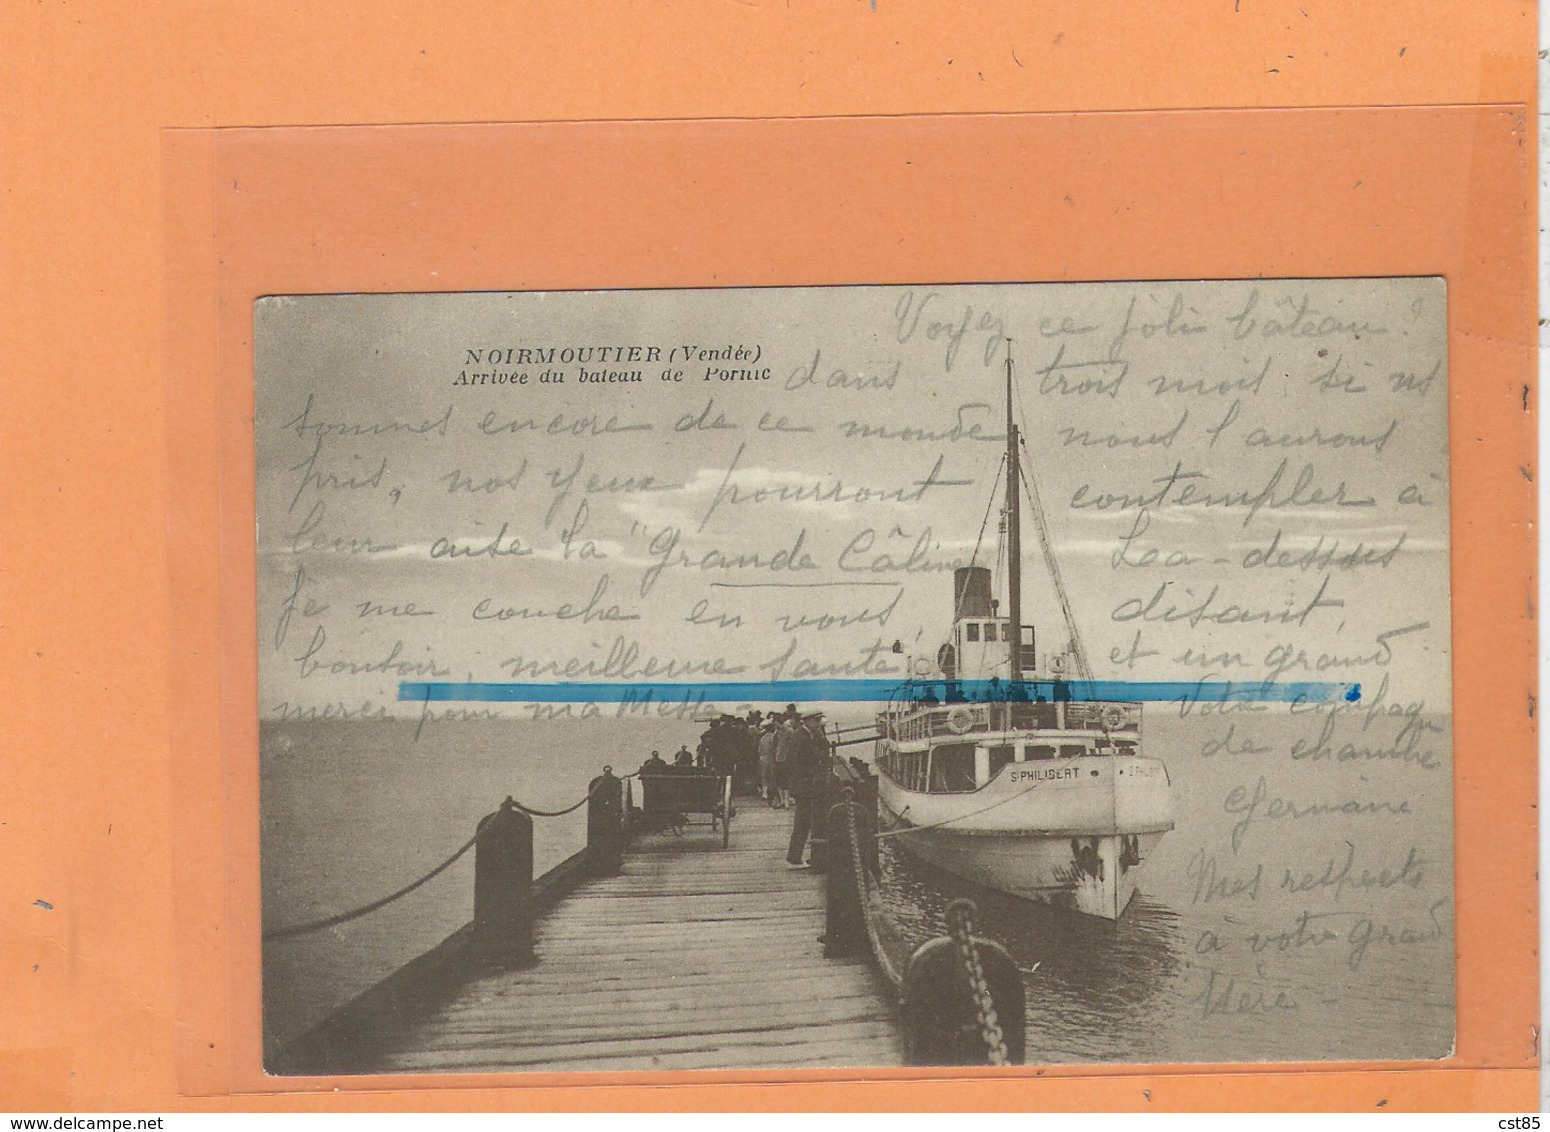 NOIRMOUTIER (Vendée)
Arrivée du bateau de Pornic
Voyez ce joli bâteau!
dans trois mois si ns
sommes encore de ce monde nous l'aurons
pris, nos yeux pourront contempler à
leur aise la "Grande Câline Lea-dessus
Je me couche en vous disant,
bonsoir, meilleure sante et un grand
merci pour ma Votre compagn
de chambre
Germaine
Mes respects
à votre Grand
Mère -
St PHILIBERT
www.delcampe.net
cst85